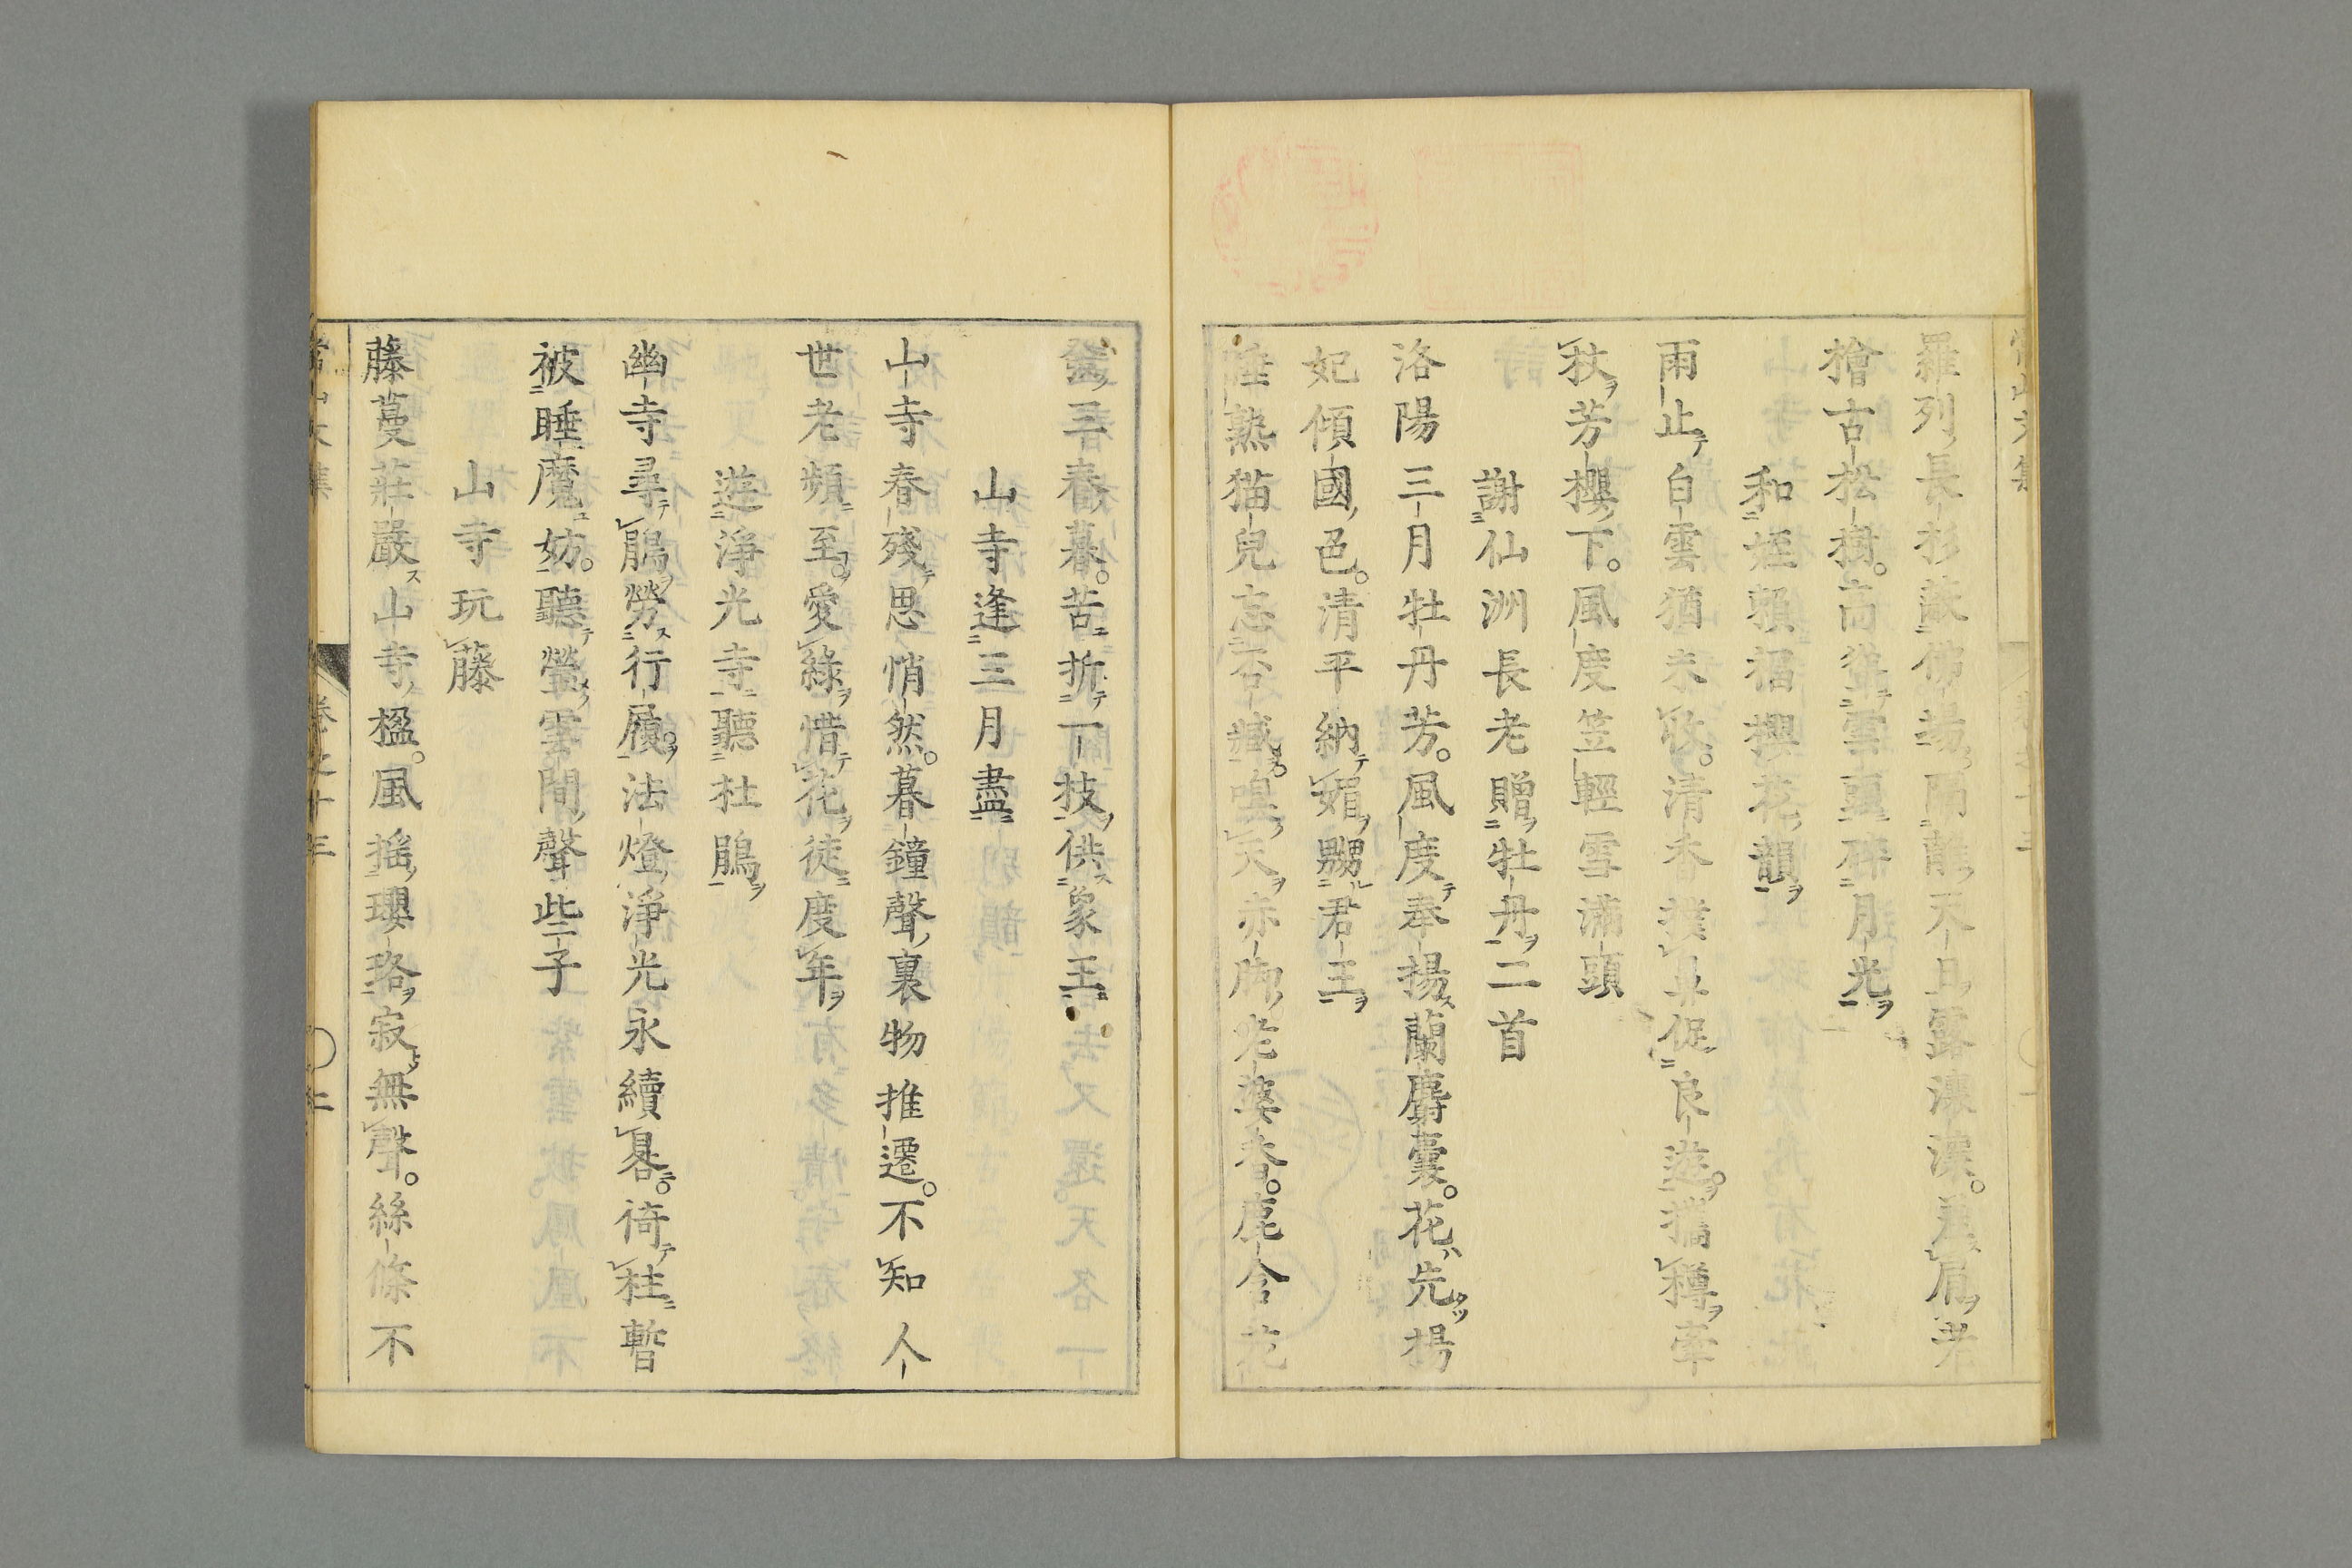 羅列長杉蔽佛場雨龍天且露瀼瀼眉
檜古松樹。高聳雲頭碎月光
和姪賴福櫻花韻
雨止白雲猶未收。清香撲鼻促良遊。攜樽牽
杖芳櫻下。風度笠輕雪滿頭
謝仙洲長老贈牡丹二首
洛陽三月牡丹芳。風度奉揚蘭麝囊。花先楊
妃傾國色。清平納媚嬲君王
睡熟猫兒忘否臧嗅天赤脚老婆春。鹿含花
三春暮。苦折一枝供象王
山寺逢三月盡
山寺春殘思悄然。暮鐘聲裏物推遷。不知人
世老頻至。愛綠惜花徒度年
遊淨光寺聽杜鵑
幽寺尋鵑勞行履。法燈淨光永續晷。倚柱暫
被睡魔妨。聽瑩雲間聲些子
山寺玩藤
藤蔓莊嚴山寺楹。風搖瓔珞寂無聲。絲條不
常山文集 卷之十三